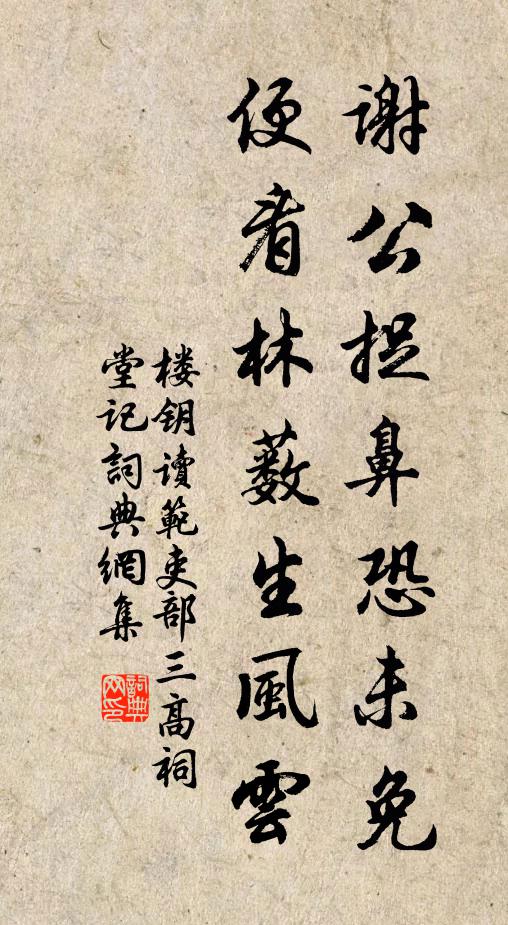 謝公捉鼻恐未免
便看林薮生風雲
楼钥讀範吏部三高祠
堂記詞典網集
詞典
网印